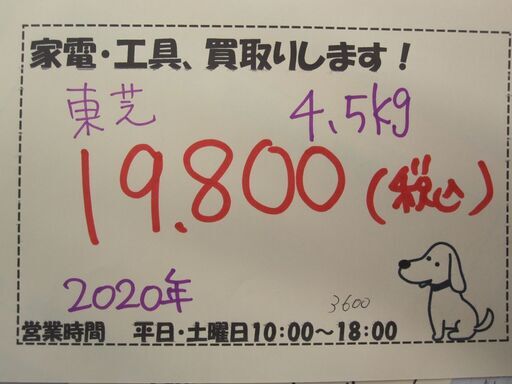 家電・工具、買取りします!
東芝 4.5kg
19.800(税込)
2020年
3600
営業時間 平日・土曜日10:00～18:00